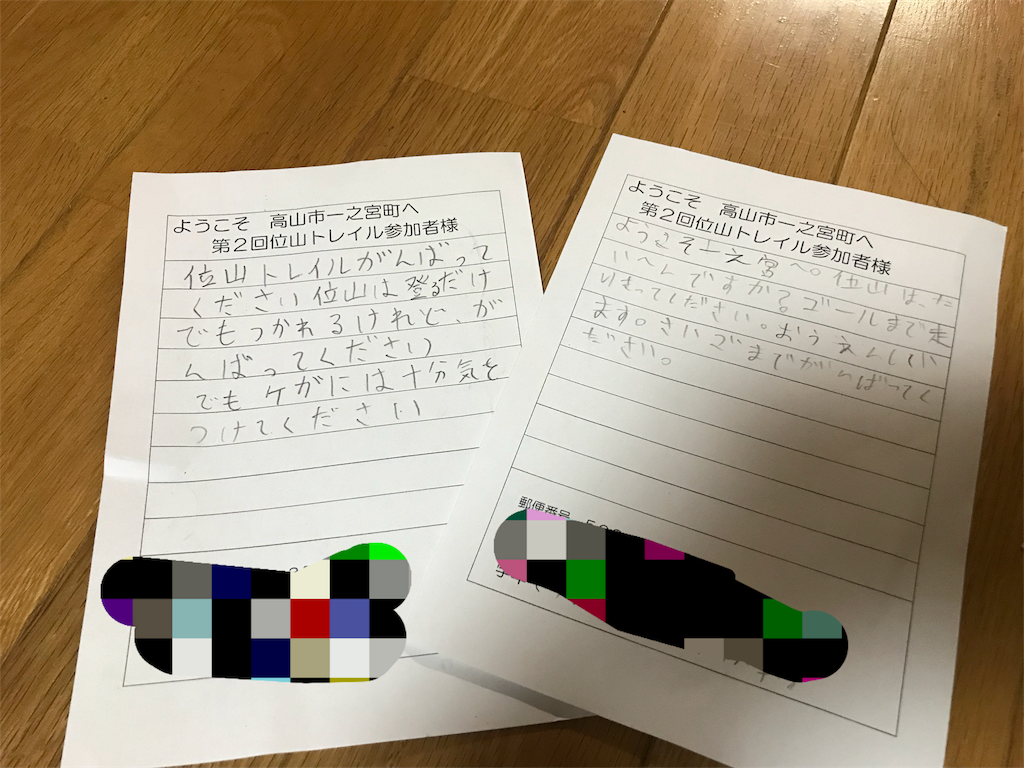 ようこそ 高山市一之宮町へ
第2回位山トレイル参加者様
位山トレイルがんばって
ください位山は登るだけ
でもつかれるけれど、が
んばってください
でもケガには十分気を
つけてください
ようこそ 高山市一之宮町へ
第2回位山トレイル参加者様
ようこそ一之宮へ。位山はた
いへんですか?ゴールまで走
りきってください。おうえんしてい
ます。さいごまでがんばってく
ださい。
郵便番号